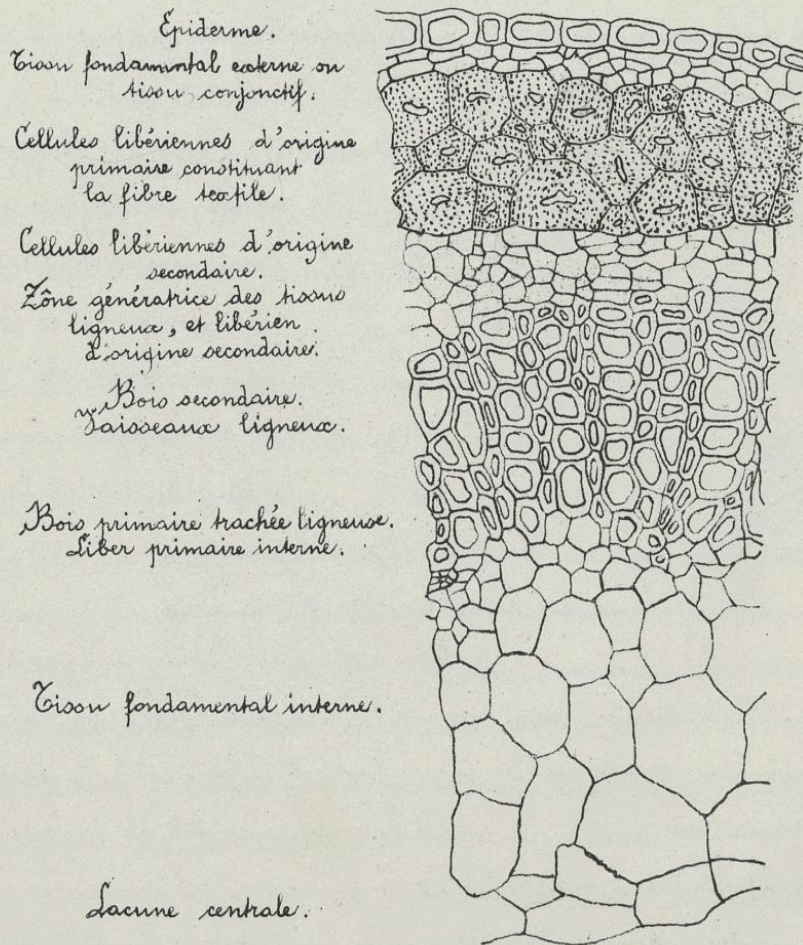 Epiderme.
Tissu fondamental externe ou
tissu conjonctif.
Cellules libériennes d'origine
primaire constituant
la fibre textile.
Cellules libériennes d'origine
secondaire.
Zône génératrice des tissus
ligneux, et libérien
d'origine secondaire.
Bois secondaire.
Vaisseaux ligneux.
Bois primaire trachée ligneuse.
Liber primaire interne.
Tissu fondamental interne.
Lacune centrale.